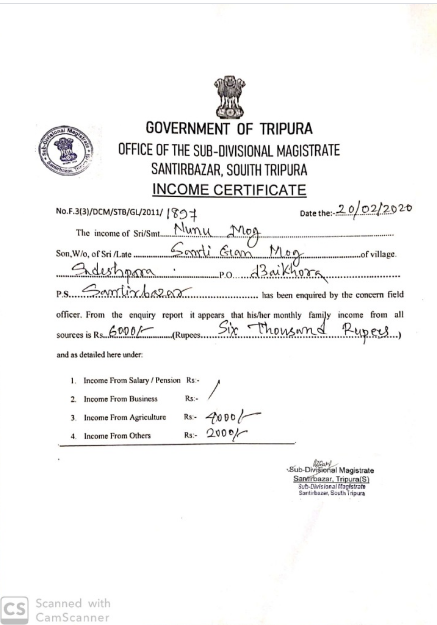 GOVERNMENT OF TRIPURA
OFFICE OF THE SUB-DIVISIONAL MAGISTRATE
SANTIRBAZAR, SOUITH TRIPURA
INCOME CERTIFICATE
No.F.3(3)/DCM/STB/GL/2011/ 1897 Date the:- 20/02/2020
The income of Sri/Smt. Nunu Mog
Son,W/o, of Sri /Late Mog of village.
P.O Baikhora
P.S. Santirbazar has been enquired by the concern field
officer. From the enquiry report it appears that his/her monthly family income from all
sources is Rs. 6000/- (Rupees Six Thousand Rupees)
and as detailed here under:
1. Income From Salary / Pension Rs:-
2. Income From Business Rs:-
3. Income From Agriculture Rs:- 4000/-
4. Income From Others Rs:- 2000/-
Sub-Divisional Magistrate
Santirbazar, Tripura(S)
Sub-Divisional Magistrate
Santirbazar, South Tripura
CS Scanned with
CamScanner